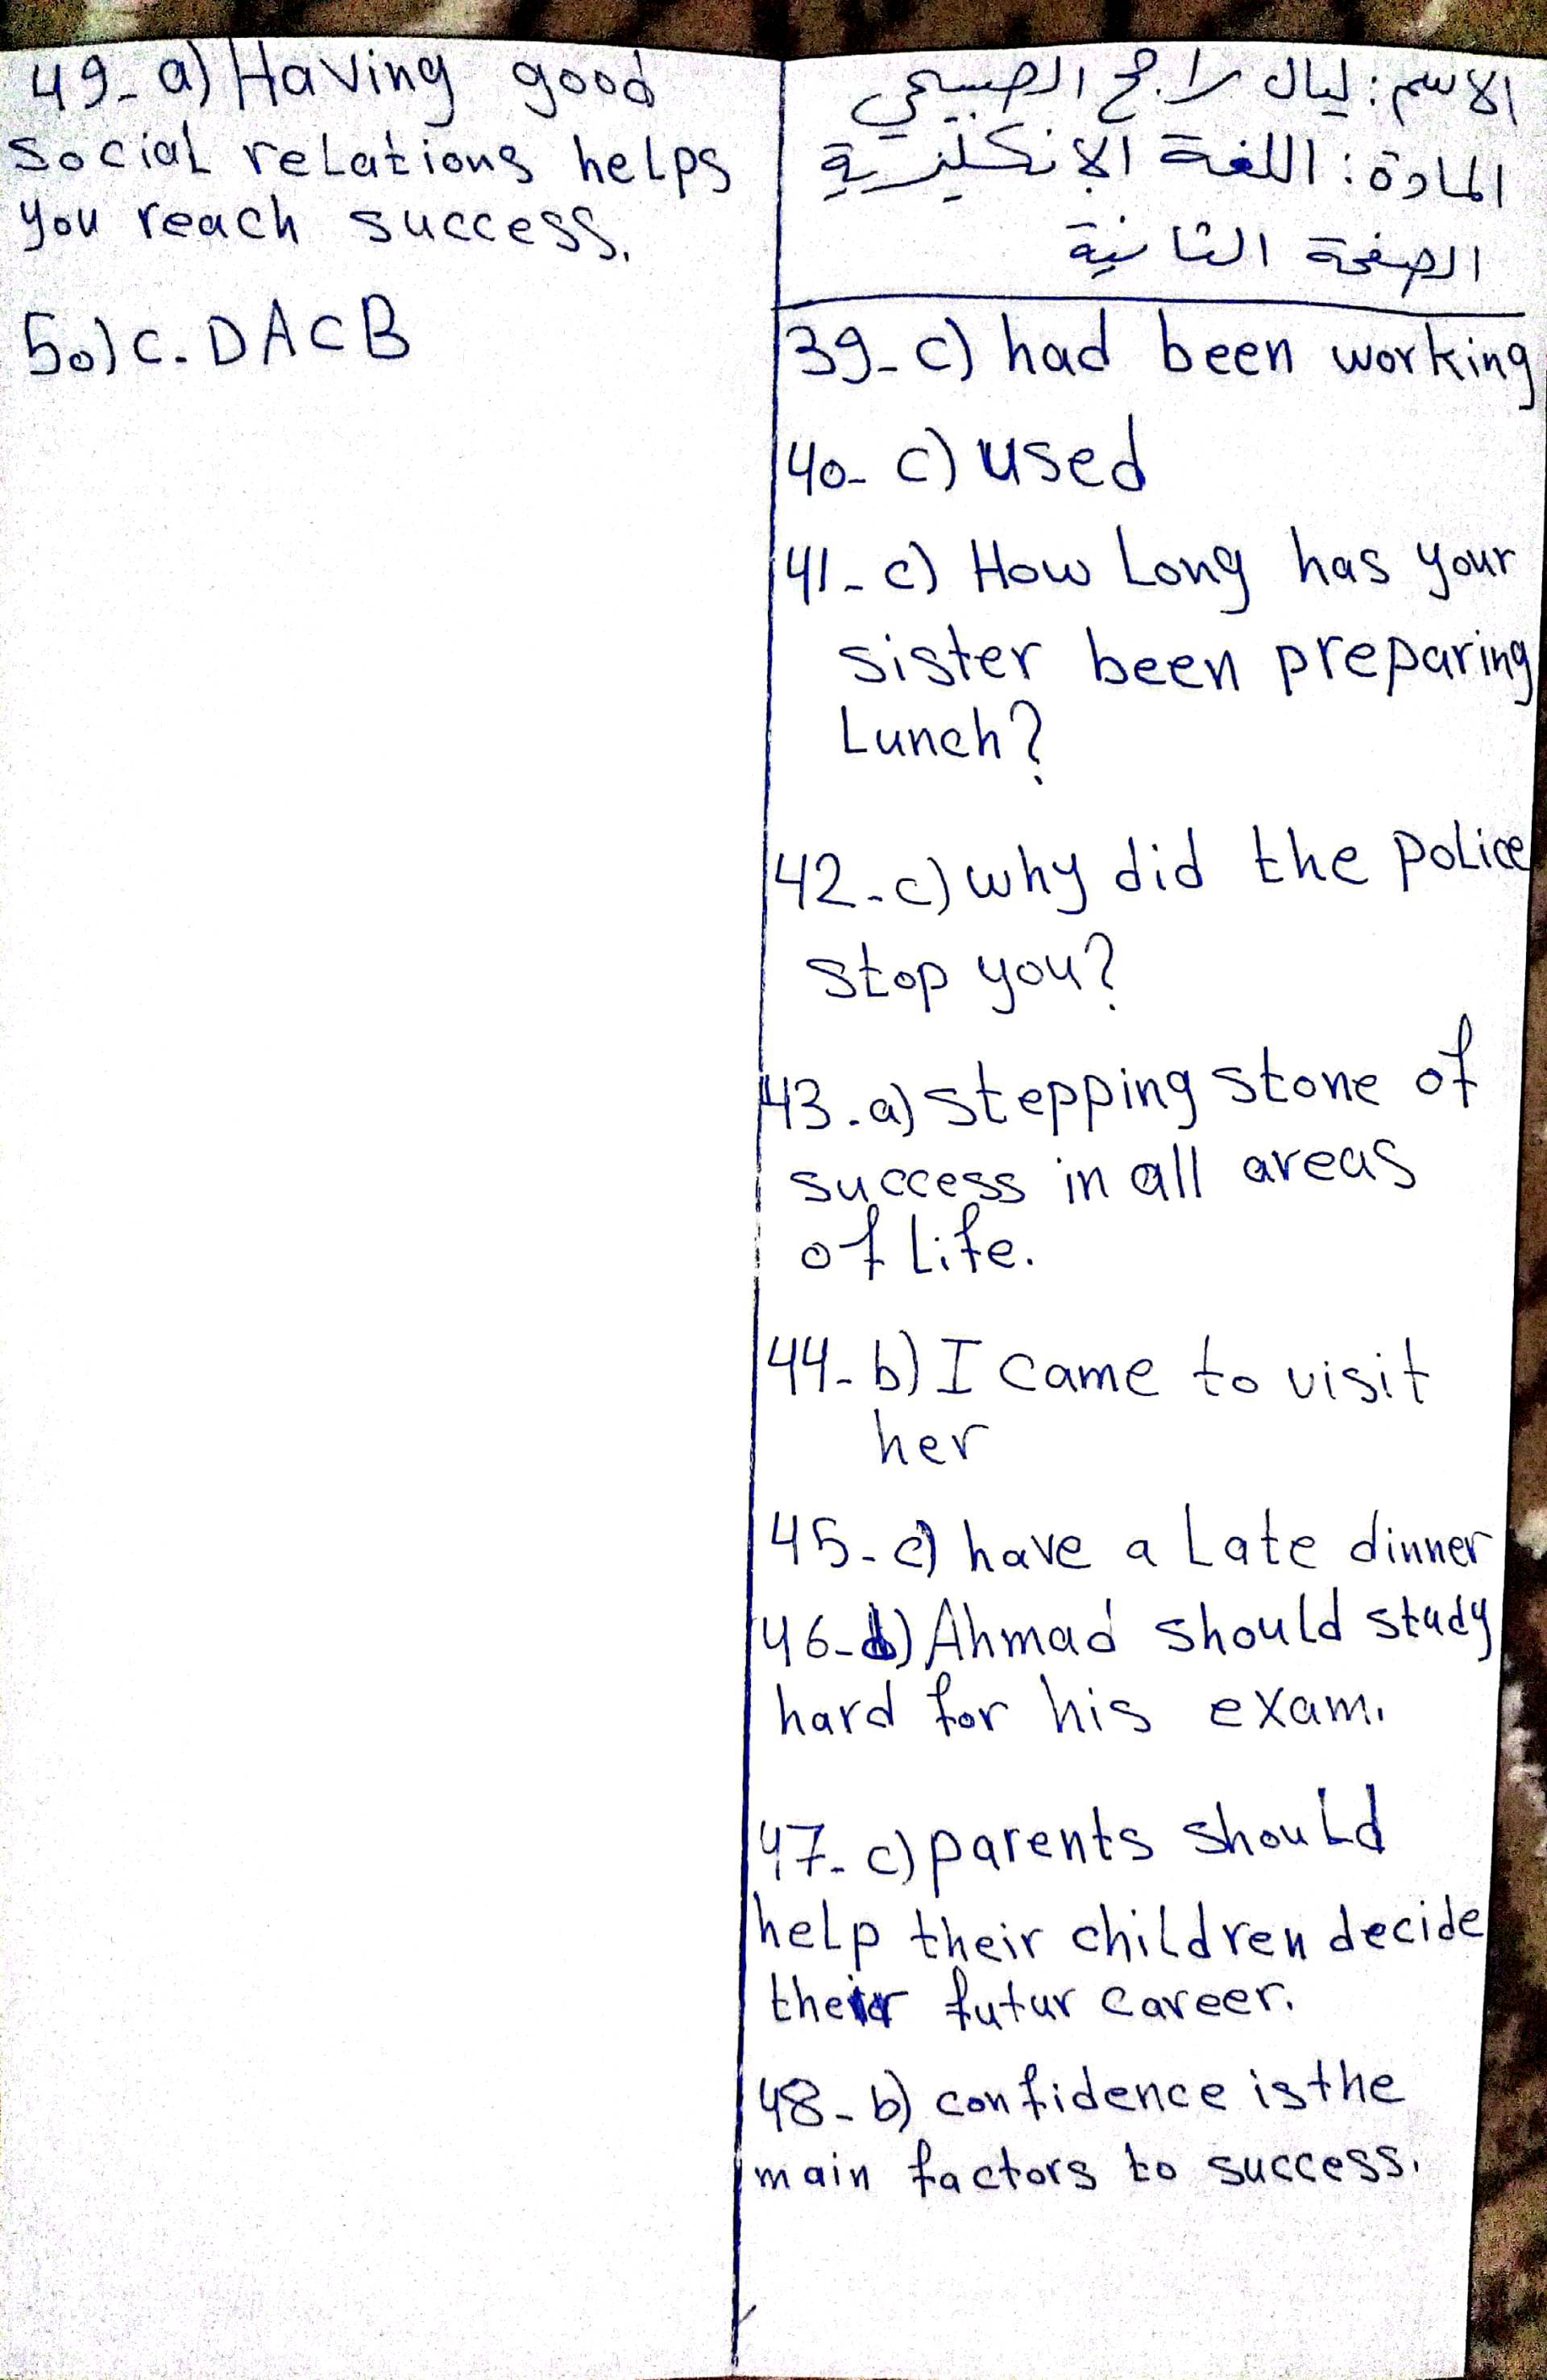 الاسم: ليال راجح الصبيحي
المادة: اللغة الإنكليزية
الصفحة الثانية
39- c) had been working
40- c) used
41- c) How Long has your
sister been preparing
Lunch?
42- c) why did the police
stop you?
43. a) stepping stone of
success in all areas
of life.
44- b) I came to visit
her
45- c) have a late dinner
46- b) Ahmad should study
hard for his exam.
47- c) parents should
help their children decide
their futur career.
48- b) confidence is the
main factors to success.
49- a) Having good
social relations helps
you reach success.
50) c. DACB